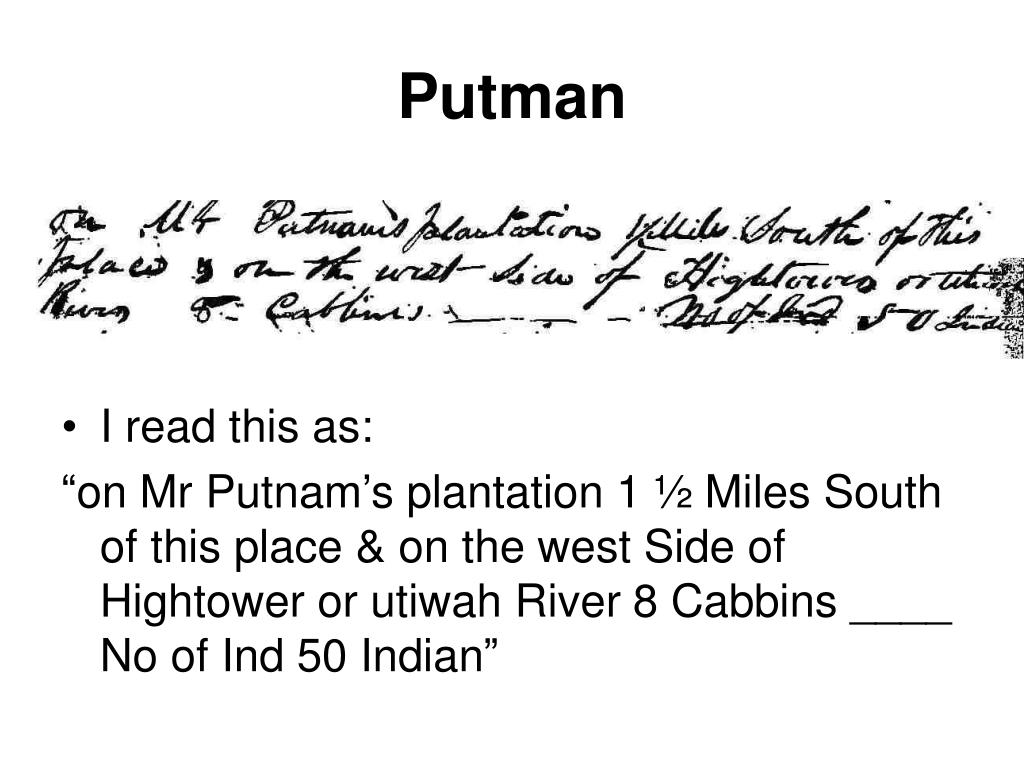 Putman
on Mr Putnam's plantation Miles South of this
place & on the west Side of Hightower or utiwah
River 8 Cabbins No of Ind 50 Indian
• I read this as:
“on Mr Putnam’s plantation 1 ½ Miles South
of this place & on the west Side of
Hightower or utiwah River 8 Cabbins ____
No of Ind 50 Indian”